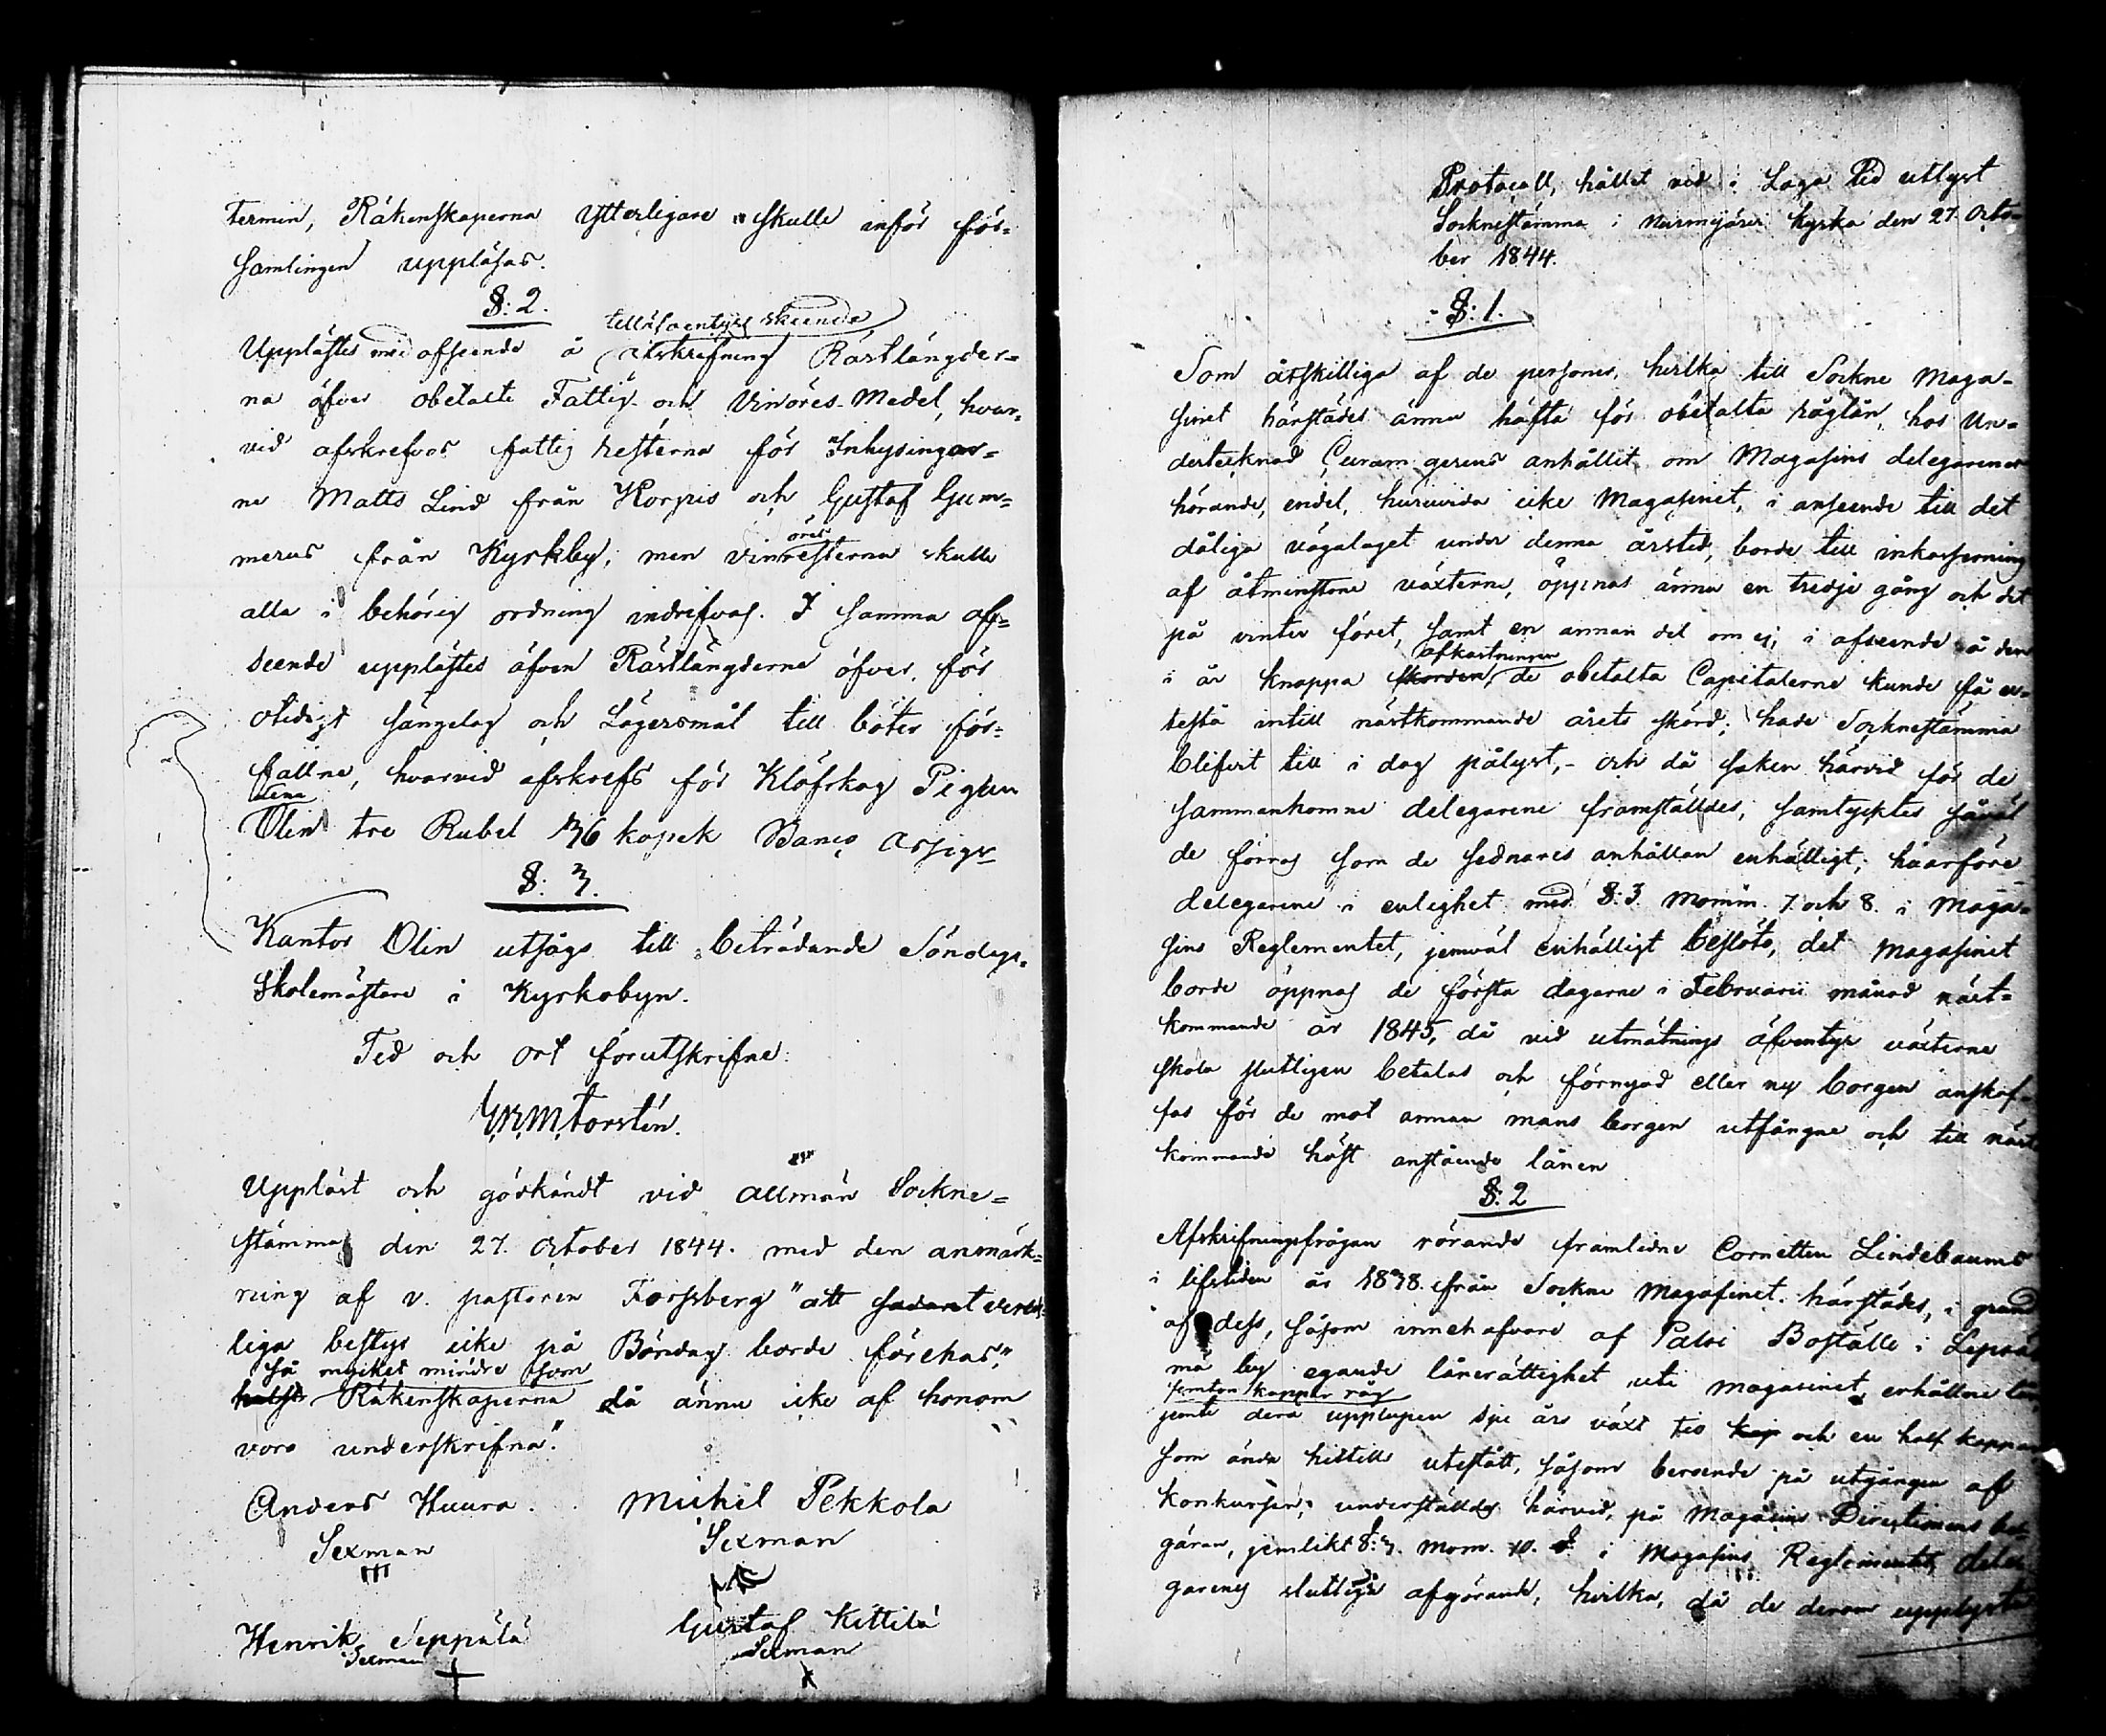 termin, Räkenskaperna ytterligare skulle inför för=
samlingen uppläsas.
§: 2.
tilläfventyrs skeende
Upplästes med afseende å afskrifning Rästlängder=
na öfver obetalte Fattig- och Vinöres-Medel, hvar=
vid afskrefvos fattig resterna för Inhysingar=
ne Matts Lind från Korpis och Gustaf Gum=
merus från Kyrkby; men vinöresresterna skulle
alla i behörig ordning indrifvas. I samma af=
seende upplästes äfven Rästlängderne öfver, för
otidigt sängelag och Lägersmål till böter för=
fallne, hvarvid afskrefs för Klöfskog Pigan
Lena
Olin tre Rubel 36 kopek Banco Assign
§: 3.
Kantor Olin utsågs till biträdande Söndags=
Skolemästare i Kyrkobyn.
Tid och ort förutskrifne:
G. R. M. Forstén.
Uppläst och godkändt vid allmän Sockne=
stämma den 27. October 1844. med den anmärk=
ning af v. pastoren Forssberg "att sådant verds=
liga bestyr icke på Böndag borde förehas,"
så mycket mindre som
helst Räkenskaperna då ännu icke af honom
voro underskrifna".
Anders Huura. Michel Pekkola
Sexman Sexman
Henrik Seppälä Gustaf Kittilä
Sexman Sexman
Protocoll, hållet vid i Laga tid utlyst
Socknestämma i Nurmijärvi kyrka den 27. Octo=
ber 1844.
§: 1.
Som åtskilliga af de personer, hvilka till Sockne Maga=
sinet härstädes ännu häfta för obetalta råglån, hos Un=
dertecknad Curam gerens anhållit om Magasins delegarenes
hörande, endel, huruvida icke Magasinet, i anseende till det
dåliga vägalaget under denna årstid, borde till inkassering
af åtminstone växterne, öppnas ännu en tredje gång och det
på vinter föret, samt en annan del om ej, i afseende å den
afkastningen
i år knappa skörden, de obetalta Capitalerne kunde få ut=
testå intill nästkommande årets skörd; hade Socknestämma
blifvit till i dag pålyst,- och då saken härvid för de
sammankomne delegarene framställdes, samtycktes såväl
de förras som de sednares anhållan enhälligt; hvarföre
delegarene i enlighet med §. 3. momm. 7. och 8. i Maga=
sins Reglementet, jemväl enhälligt beslöto, det Magasinet
borde öppnas de första dagarne i Februarii månad näst=
kommande år 1845, då vid utmätnings äfventyr växterne
skola slutligen betalas och förnyad eller ny borgen anskaf=
fas för de mot annan mans borgen utfångne och till näst
kommande höst anstående lånen
§: 2
Afskrifningsfrågan rörande framlidne Cornetten Lindebaums
i lifstiden år 1838. från Sockne Magasinet härstädes, i grund
af dess, såsom innehafvare af Paloi Boställe i Lepsä=
mä by egande lånerättighet uti magasinet, erhållne lån
femton kappar råg
jemte derå upplupen sju års växt tio kap och en half kappar
som ända hittills utestått, såsom beroende på utgången af
konkursen; underställdes härvid, på Magasins Directionens be=
gäran, jemlikt §: 3. mom. 10. i Magasins Reglementet, dele=
garenes slutliga afgörande, hvilka, då de derom upplyste